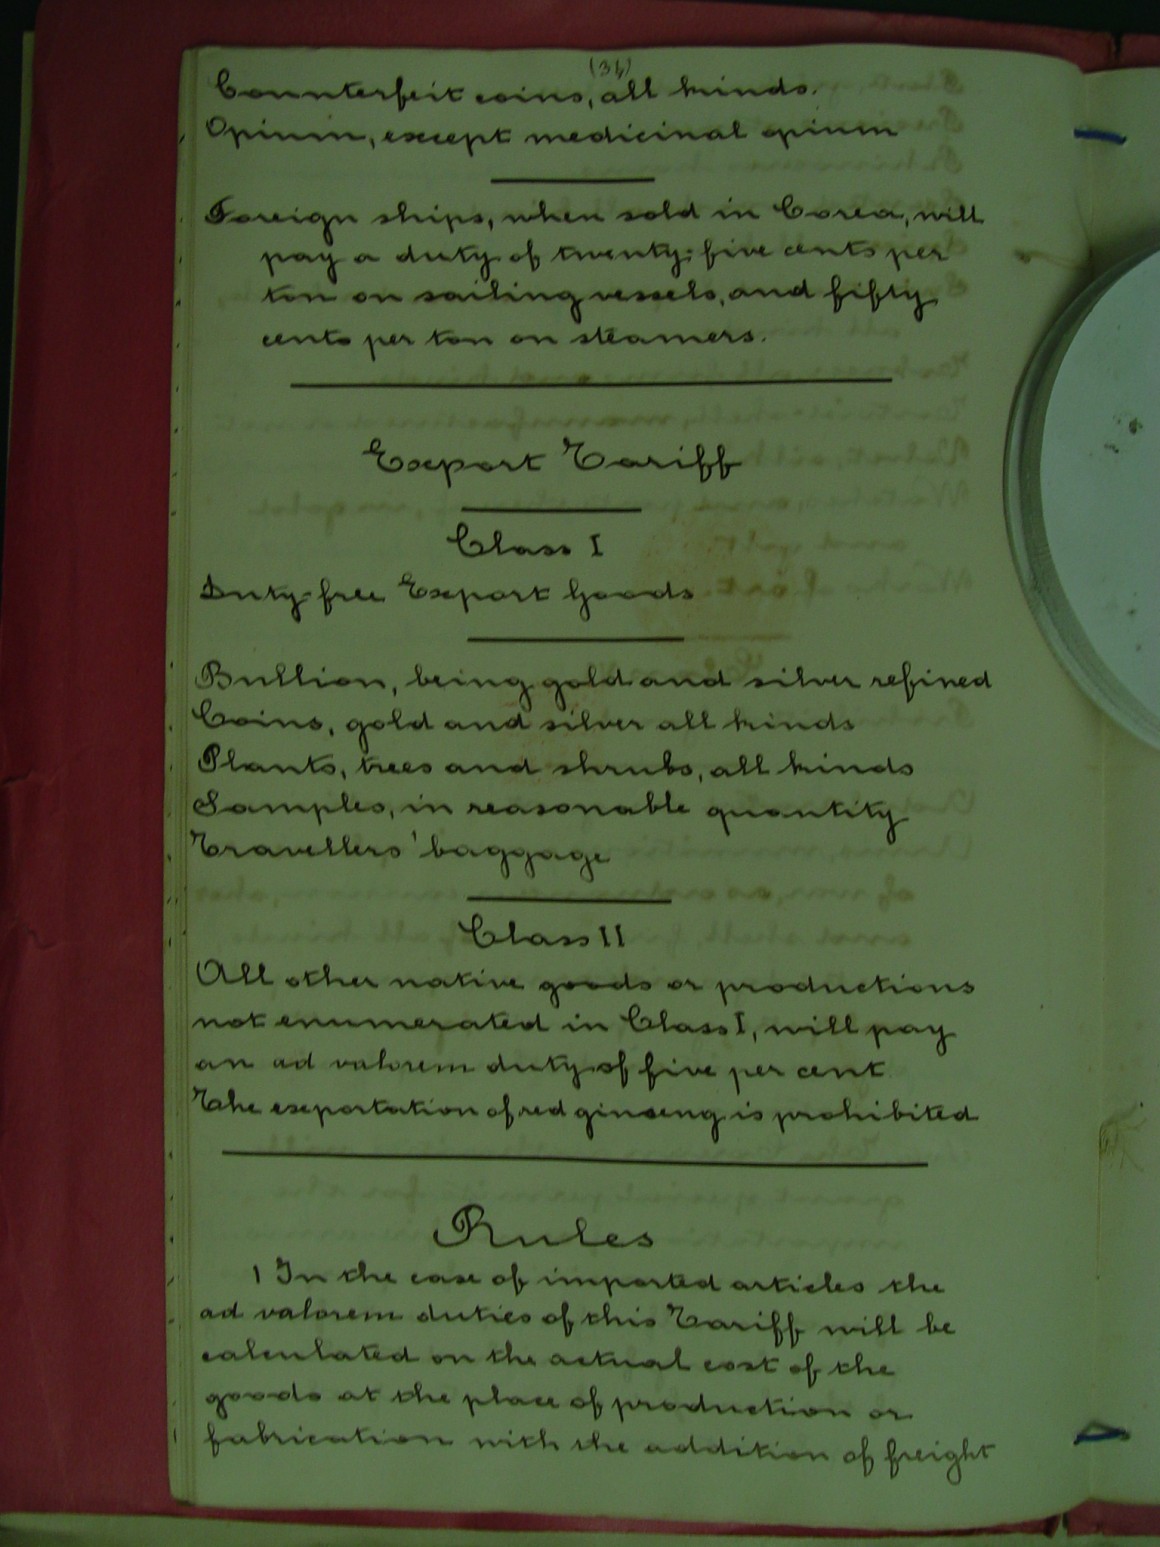 (34)
Counterfeit coins, all kinds.
Opium, except medicinal opium
Foreign ships, when sold in Corea, will
pay a duty of twenty-five cents per
ton on sailing vessels, and fifty
cents per ton on steamers.
Export Tariff
Class I
Duty-free Export Goods
Bullion, being gold and silver refined
Coins, gold and silver all kinds
Plants, trees and shrubs, all kinds
Samples, in reasonable quantity
Travellers' baggage
Class II
All other native goods or productions
not enumerated in Class I, will pay
an ad valorem duty of five per cent
The exportation of red ginseng is prohibited
Rules
1 In the case of imported articles the
ad valorem duties of this Tariff will be
calculated on the actual cost of the
goods at the place of production or
fabrication with the addition of freight